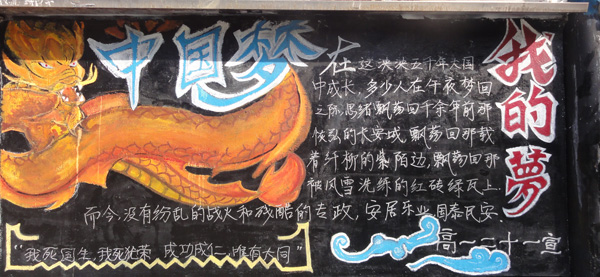 中国梦
我的夢
在这泱泱五千年大国
中成长,多少人在午夜梦回
之际,思绪飘荡回千余年前那
恢弘的长安城,飘荡回那载
着纤桥的巷陌边,飘荡回那
被风雪洗练的红砖绿瓦上.
而今,没有纷乱的战火和残酷的专政,安居乐业,国泰民安.
"我死国生,我死犹荣,成功成仁,唯有大同"
高一二十一宣